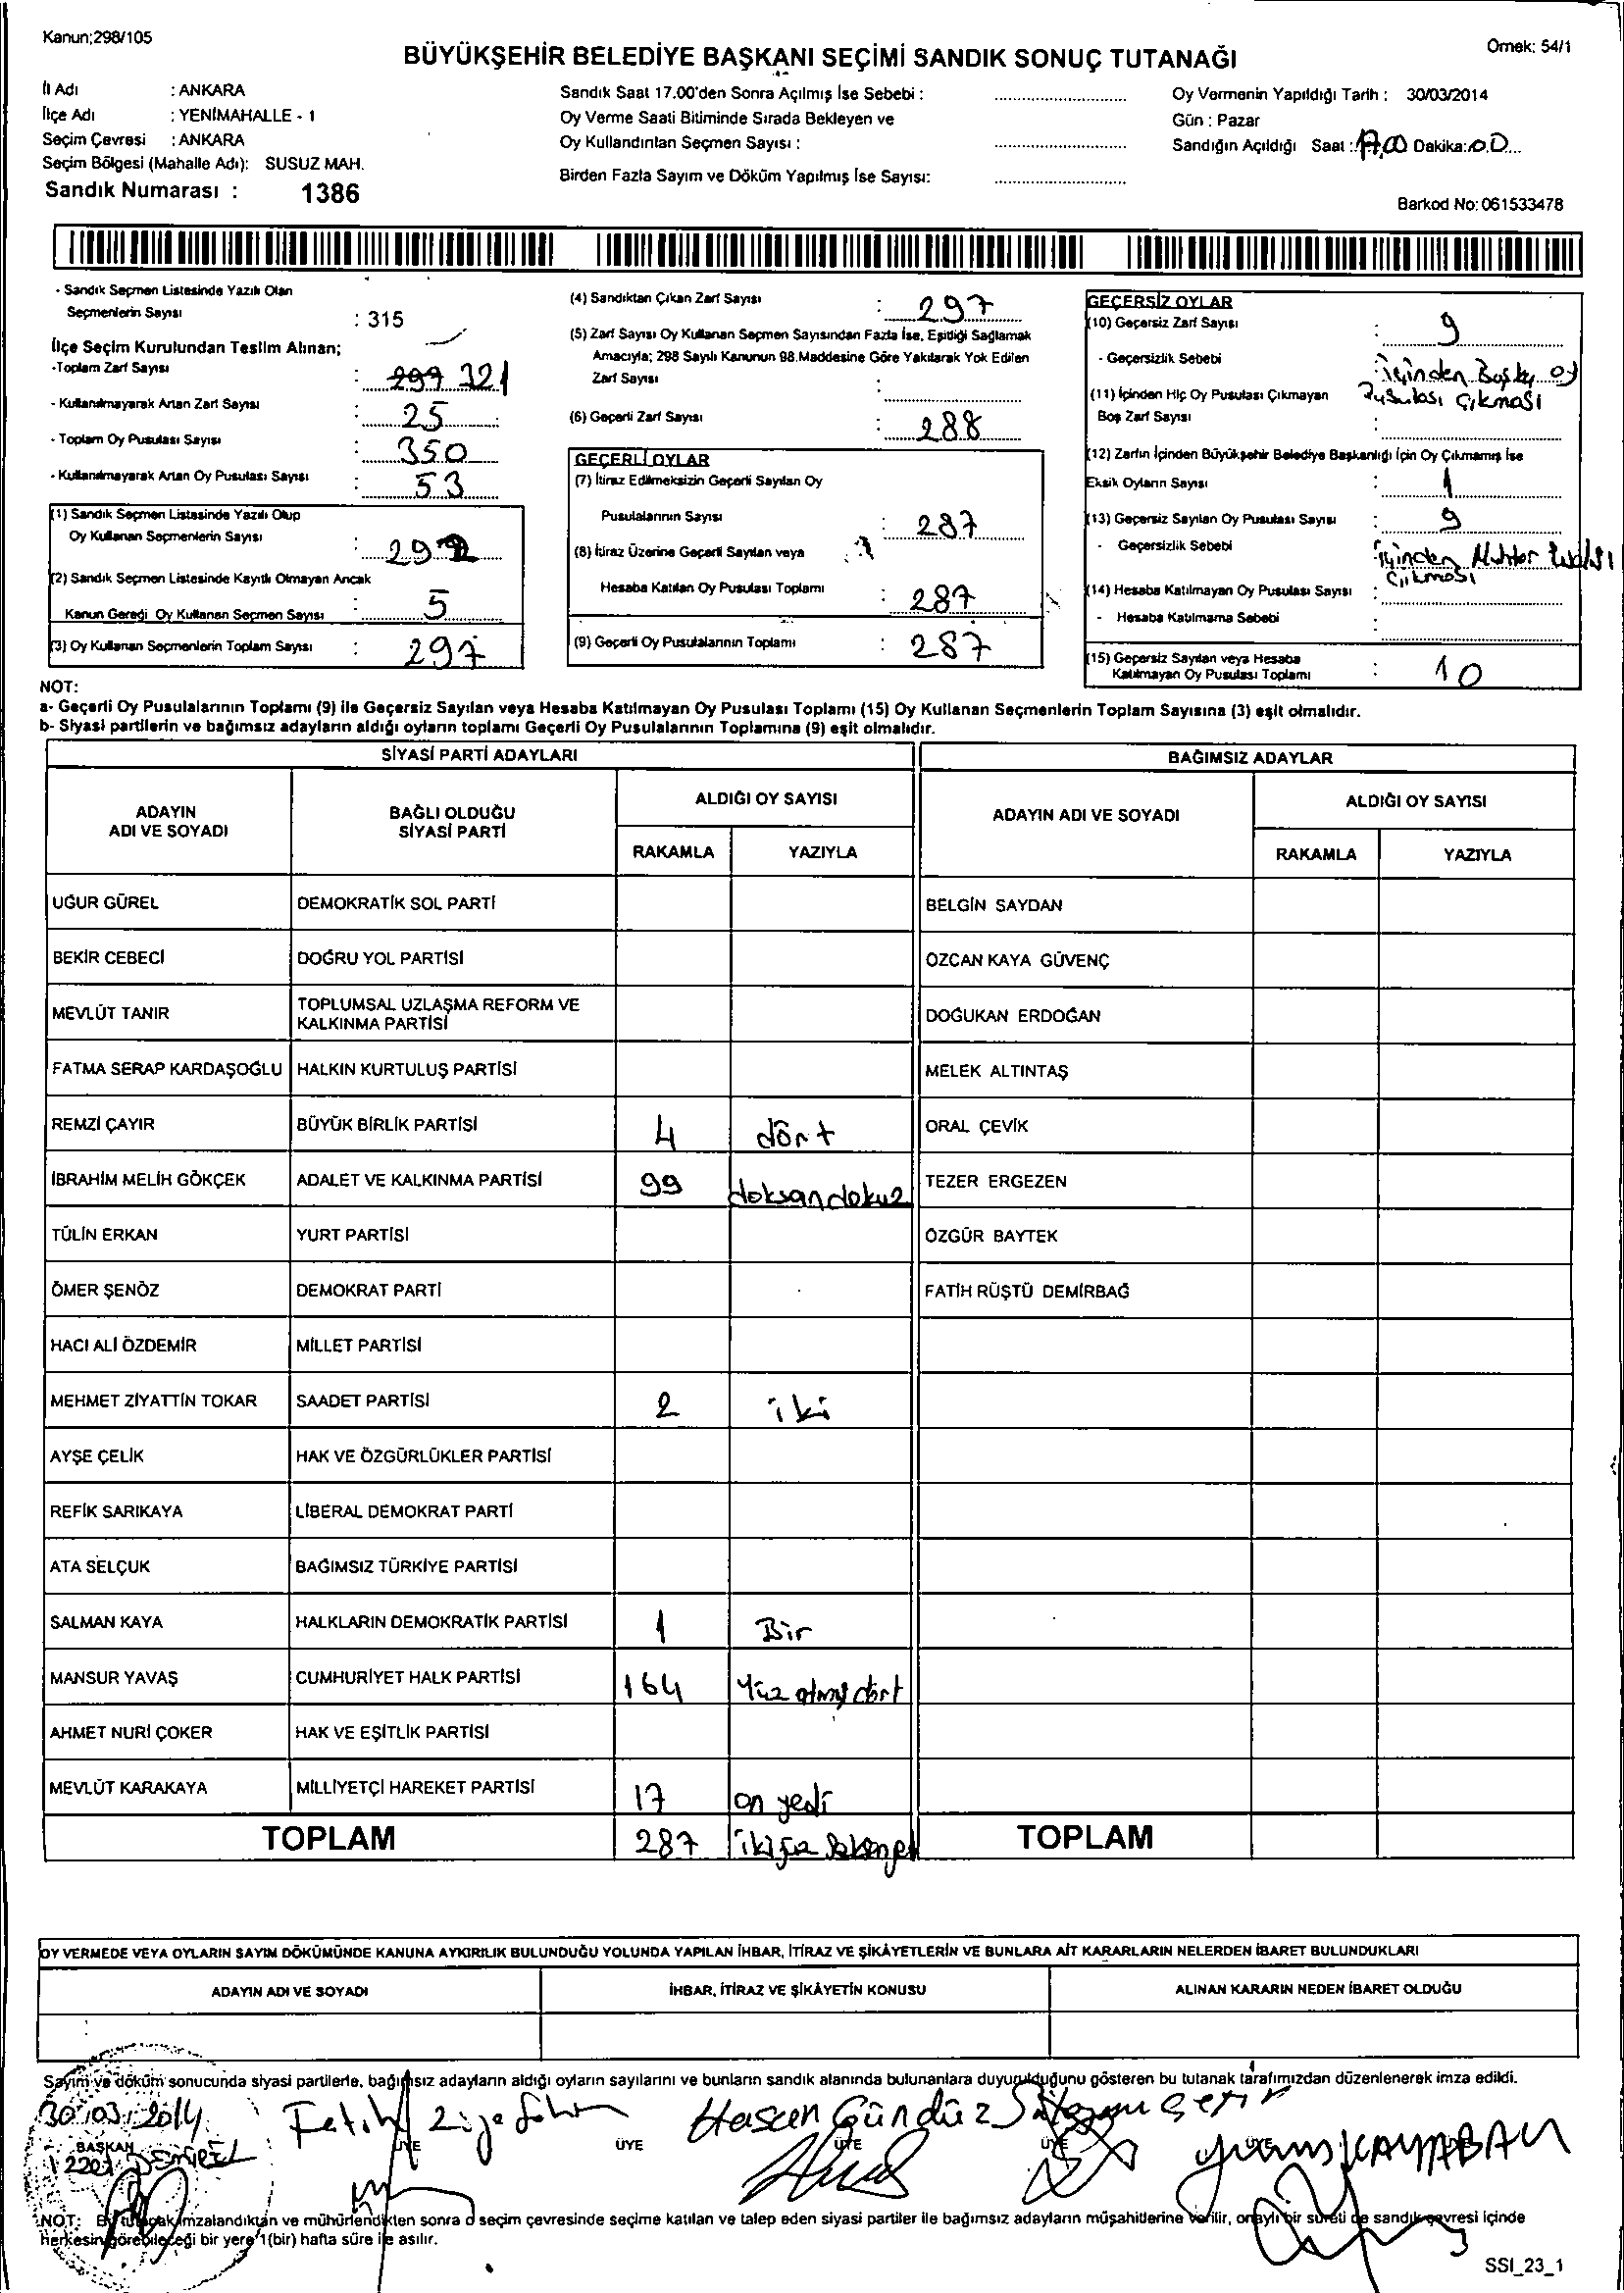 Kanun;298/105
Örnek: 54/1
BÜYÜKŞEHİR BELEDİYE BAŞKANI SEÇİMİ SANDIK SONUÇ TUTANAĞI
İl Adı : ANKARA
İlçe Adı : YENİMAHALLE - 1
Seçim Çevresi : ANKARA
Seçim Bölgesi (Mahalle Adı): SUSUZ MAH.
Sandık Numarası : 1386
Sandık Saat 17.00'den Sonra Açılmış İse Sebebi :
Oy Verme Saati Bitiminde Sırada Bekleyen ve
Oy Kullandırılan Seçmen Sayısı :
Birden Fazla Sayım ve Döküm Yapılmış İse Sayısı:
Oy Vermenin Yapıldığı Tarih : 30/03/2014
Gün : Pazar
Sandığın Açıldığı Saat : 17.00 Dakika: 00
Barkod No: 061533478
- Sandık Seçmen Listesinde Yazılı Olan
Seçmenlerin Sayısı : 315
İlçe Seçim Kurulundan Teslim Alınan;
-Toplam Zarf Sayısı : 299 321
- Kullanılmayarak Artan Zarf Sayısı : 25
- Toplam Oy Pusulası Sayısı : 350
- Kullanılmayarak Artan Oy Pusulası Sayısı : 53
(1) Sandık Seçmen Listesinde Yazılı Olup
Oy Kullanan Seçmenlerin Sayısı : 292
(2) Sandık Seçmen Listesinde Kayıtlı Olmayan Ancak
Kanun Gereği Oy Kullanan Seçmen Sayısı : 5
(3) Oy Kullanan Seçmenlerin Toplam Sayısı : 297
(4) Sandıktan Çıkan Zarf Sayısı : 297
(5) Zarf Sayısı Oy Kullanan Seçmen Sayısından Fazla İse, Eşitliği Sağlamak
Amacıyla; 298 Sayılı Kanunun 98.Maddesine Göre Yakılarak Yok Edilen
Zarf Sayısı :
(6) Geçerli Zarf Sayısı : 288
GEÇERLİ OYLAR
(7) İtiraz Edilmeksizin Geçerli Sayılan Oy
Pusulalarının Sayısı : 287
(8) İtiraz Üzerine Geçerli Sayılan veya
Hesaba Katılan Oy Pusulası Toplamı : 287
(9) Geçerli Oy Pusulalarının Toplamı : 287
GEÇERSİZ OYLAR
(10) Geçersiz Zarf Sayısı : 9
- Geçersizlik Sebebi : içinden Başka oy
Pusulası Çıkması
(11) İçinden Hiç Oy Pusulası Çıkmayan
Boş Zarf Sayısı :
(12) Zarfın İçinden Büyükşehir Belediye Başkanlığı İçin Oy Çıkmamış İse
Eksik Oyların Sayısı : 1
(13) Geçersiz Sayılan Oy Pusulası Sayısı : 9
- Geçersizlik Sebebi : içinden Muhtar
Çıkması
(14) Hesaba Katılmayan Oy Pusulası Sayısı :
- Hesaba Katılmama Sebebi :
(15) Geçersiz Sayılan veya Hesaba
Katılmayan Oy Pusulası Toplamı : 10
NOT:
a- Geçerli Oy Pusulalarının Toplamı (9) ile Geçersiz Sayılan veya Hesaba Katılmayan Oy Pusulası Toplamı (15) Oy Kullanan Seçmenlerin Toplam Sayısına (3) eşit olmalıdır.
b- Siyasi partilerin ve bağımsız adayların aldığı oyların toplamı Geçerli Oy Pusulalarının Toplamına (9) eşit olmalıdır.
SİYASİ PARTİ ADAYLARI BAĞIMSIZ ADAYLAR
ADAYIN ADI VE SOYADI BAĞLI OLDUĞU SİYASİ PARTİ ALDIĞI OY SAYISI ADAYIN ADI VE SOYADI ALDIĞI OY SAYISI
RAKAMLA YAZIYLA RAKAMLA YAZIYLA
UĞUR GÜREL DEMOKRATİK SOL PARTİ BELGİN SAYDAN
BEKİR CEBECİ DOĞRU YOL PARTİSİ ÖZCAN KAYA GÜVENÇ
MEVLÜT TANIR TOPLUMSAL UZLAŞMA REFORM VE KALKINMA PARTİSİ DOĞUKAN ERDOĞAN
FATMA SERAP KARDAŞOĞLU HALKIN KURTULUŞ PARTİSİ MELEK ALTINTAŞ
REMZİ ÇAYIR BÜYÜK BİRLİK PARTİSİ 4 dört ORAL ÇEVİK
İBRAHİM MELİH GÖKÇEK ADALET VE KALKINMA PARTİSİ 99 doksandokuz TEZER ERGEZEN
TÜLİN ERKAN YURT PARTİSİ ÖZGÜR BAYTEK
ÖMER ŞENÖZ DEMOKRAT PARTİ FATİH RÜŞTÜ DEMİRBAĞ
HACI ALİ ÖZDEMİR MİLLET PARTİSİ
MEHMET ZİYATTİN TOKAR SAADET PARTİSİ 2 iki
AYŞE ÇELİK HAK VE ÖZGÜRLÜKLER PARTİSİ
REFİK SARIKAYA LİBERAL DEMOKRAT PARTİ
ATA SELÇUK BAĞIMSIZ TÜRKİYE PARTİSİ
SALMAN KAYA HALKLARIN DEMOKRATİK PARTİSİ 1 Bir
MANSUR YAVAŞ CUMHURİYET HALK PARTİSİ 164 Yüz atmış dört
AHMET NURİ ÇOKER HAK VE EŞİTLİK PARTİSİ
MEVLÜT KARAKAYA MİLLİYETÇİ HAREKET PARTİSİ 17 on yedi
TOPLAM 287 ikiyüz TOPLAM
OY VERMEDE VEYA OYLARIN SAYIM DÖKÜMÜNDE KANUNA AYKIRILIK BULUNDUĞU YOLUNDA YAPILAN İHBAR, İTİRAZ VE ŞİKÂYETLERİN VE BUNLARA AİT KARARLARIN NELERDEN İBARET BULUNDUKLARI
ADAYIN ADI VE SOYADI İHBAR, İTİRAZ VE ŞİKÂYETİN KONUSU ALINAN KARARIN NEDEN İBARET OLDUĞU
Sayım ve döküm sonucunda siyasi partilerle, bağımsız adayların aldığı oyların sayılarını ve bunların sandık alanında bulunanlara duyurulduğunu gösteren bu tutanak tarafımızdan düzenlenerek imza edildi.
30/03/2014 Fatih Ziya Hasan Gündüz
BAŞKAN ÜYE ÜYE ÜYE ÜYE ÜYE
DEMİREL KAYABAN
NOT: Bu tutanak imzalandıktan ve mühürlendikten sonra o seçim çevresinde seçime katılan ve talep eden siyasi partiler ile bağımsız adayların müşahitlerine verilir, onaylı bir sureti de sandık çevresi içinde
herkesin görebileceği bir yere 1(bir) hafta süre ile asılır.
SSI_23_1